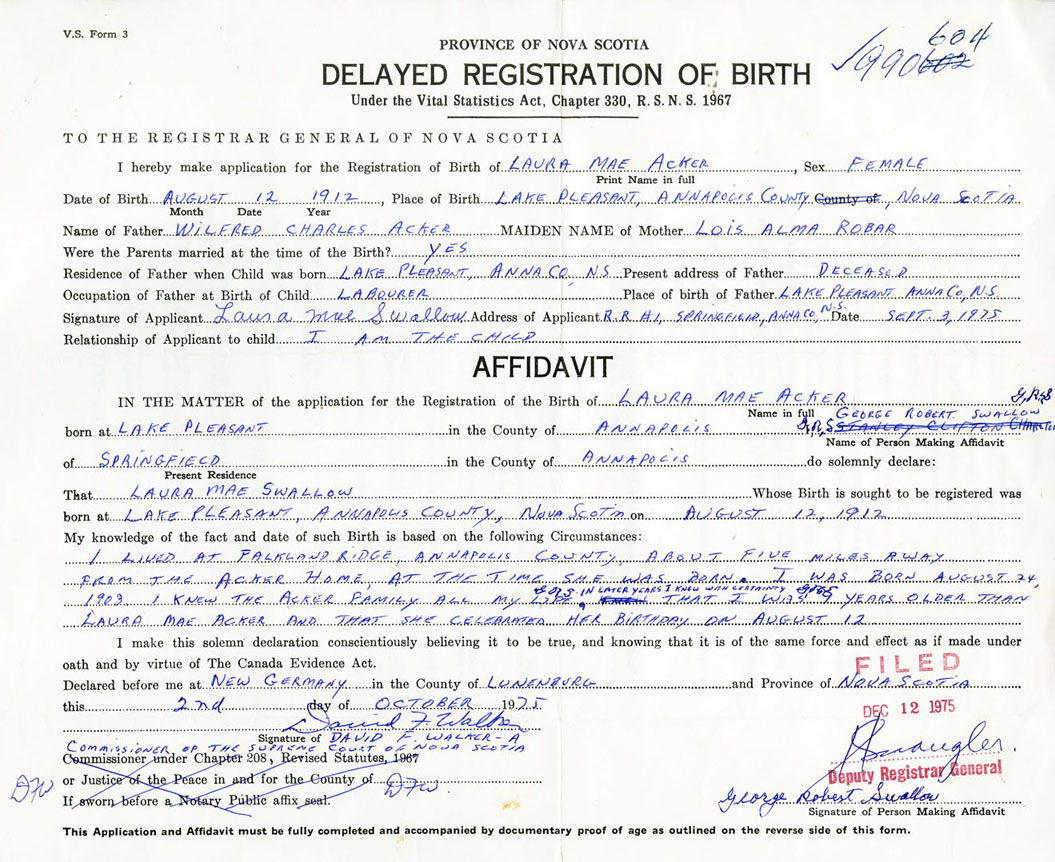 V.S. Form 3
604
PROVINCE OF NOVA SCOTIA
1990602
DELAYED REGISTRATION OF BIRTH
Under the Vital Statistics Act, Chapter 330, R. S. N. S. 1967
TO THE REGISTRAR GENERAL OF NOVA SCOTIA
I hereby make application for the Registration of Birth of LAURA MAE ACKER, Sex FEMALE
Print Name in full
Date of Birth AUGUST 12 1912, Place of Birth LAKE PLEASANT, ANNAPOLIS COUNTY County of, NOVA SCOTIA
Month Date Year
Name of Father WILFRED CHARLES ACKER MAIDEN NAME of Mother LOIS ALMA ROBAR
Were the Parents married at the time of the Birth? YES
Residence of Father when Child was born LAKE PLEASANT, ANNA CO, NS Present address of Father DECEASED
Occupation of Father at Birth of Child LABOURER Place of birth of Father LAKE PLEASANT ANNA CO, N.S.
Signature of Applicant Laura Mae Swallow Address of Applicant R.R #1, SPRINGFIELD, ANNA CO, N.S. Date SEPT. 3, 1975
Relationship of Applicant to child I AM THE CHILD
AFFIDAVIT
IN THE MATTER of the application for the Registration of the Birth of LAURA MAE ACKER G.R.S
Name in full GEORGE ROBERT SWALLOW
born at LAKE PLEASANT in the County of ANNAPOLIS G.R.S STANLEY CLIFTON
Name of Person Making Affidavit
of SPRINGFIELD in the County of ANNAPOLIS do solemnly declare:
Present Residence
That LAURA MAE SWALLOW Whose Birth is sought to be registered was
born at LAKE PLEASANT, ANNAPOLIS COUNTY, NOVA SCOTIA on AUGUST 12, 1912
My knowledge of the fact and date of such Birth is based on the following Circumstances:
I LIVED AT FALKLAND RIDGE, ANNAPOLIS COUNTY, ABOUT FIVE MILES AWAY
FROM THE ACKER HOME, AT THE TIME SHE WAS BORN. I WAS BORN AUGUST 24,
G.R.S. IN LATER YEARS I KNEW WITH CERTAINTY GRS
1903. I KNEW THE ACKER FAMILY ALL MY LIFE, THAT I WAS 9 YEARS OLDER THAN
LAURA MAE ACKER AND THAT SHE CELEBRATED HER BIRTHDAY ON AUGUST 12
I make this solemn declaration conscientiously believing it to be true, and knowing that it is of the same force and effect as if made under
oath and by virtue of The Canada Evidence Act.
FILED
Declared before me at NEW GERMANY in the County of LUNENBURG and Province of NOVA SCOTIA
this 2nd day of OCTOBER 1975
DEC 12 1975
David F. Walker
Signature of DAVID F. WALKER - A
COMMISSIONER OF THE SUPREME COURT OF NOVA SCOTIA
Commissioner under Chapter 208, Revised Statutes, 1967
or Justice of the Peace in and for the County of DFW.
Deputy Registrar General
DFW
If sworn before a Notary Public affix seal.
George Robert Swallow
Signature of Person Making Affidavit
This Application and Affidavit must be fully completed and accompanied by documentary proof of age as outlined on the reverse side of this form.